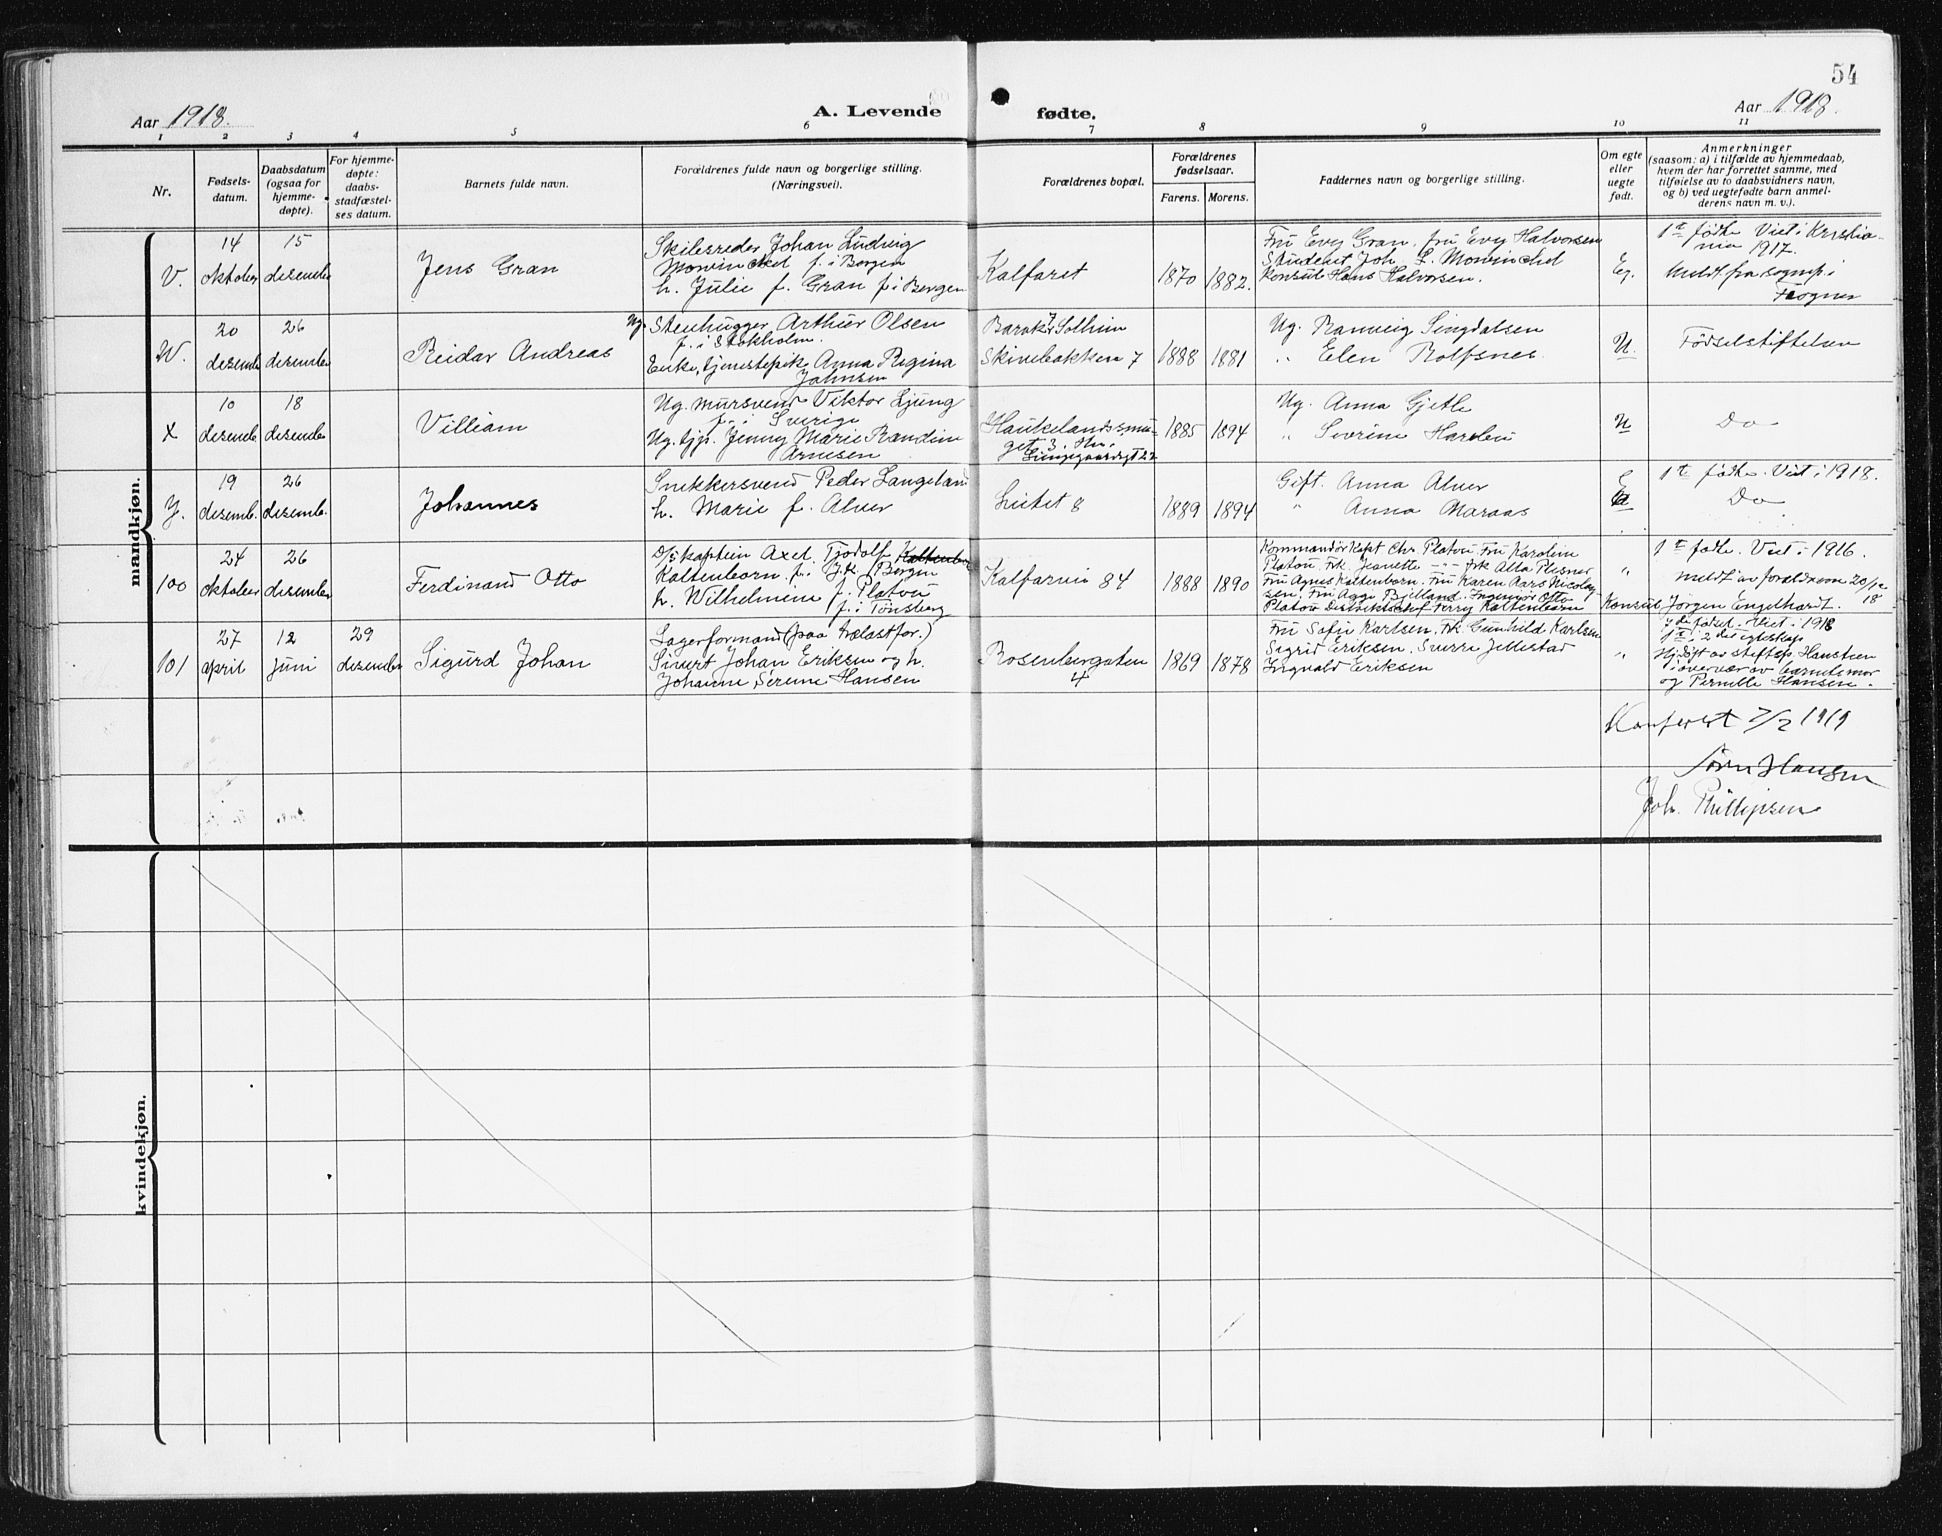 54
Aar 1918.
A. Levende fødte.
Aar 1918.
1 2 3 4 5 6 7 8 9 10 11
Nr.
Fødsels-
datum.
Daabsdatum
(ogsaa for
hjemme-
døpte).
For hjemme-
døpte:
daabs-
stadfæstel-
ses datum.
Barnets fulde navn.
Forældrenes fulde navn og borgerlige stilling.
(Næringsvei).
Forældrenes bopæl.
Forældrenes
fødselsaar.
Farens. Morens.
Faddernes navn og borgerlige stilling.
Om egte
eller
uegte
født.
Anmerkninger
(saasom: a) i tilfælde av hjemmedaab,
hvem der har forrettet samme, med
tilføielse av to daabsvidners navn,
og b) ved uegtefødte barn anmel-
derens navn m. v.).
mandkjøn.
V.
14
oktober
15
desember
Jens Gran
Skibsreder Johan Ludvig
Mowinckel f. i Bergen
h. Julie f. Gran f. i Bergen
Kalfaret
1870
1882.
Fru Evy Gran, fru Evy Halvorsen
Student Joh. L. Mowinckel
Konsul Hans Halvorsen.
Eg.
1te fødte Viet i Kristia-
nia 1917.
Meldt fra sognep. i
Frogner
W.
20
desember
26
desember
Reidar Andreas
Ug. Stenhugger Arthur Olsen
f. i Stokholm.
Enke, tjenestepike Anna Regina
Johnsen
Solheim
Skivebakken 7
1888
1881
Ug. Ranveig Singdalsen
" Elen Rolfsnes
U.
Fødselstiftelsen
X
10
desemb.
18
desember
Villiam
Ug. mursvend Viktor Ljung
f. i Sverige
Ug. tjp. Jenny Marie Randine
Arnesen
Haukelandssmu-
get 3.
1885
1894
Ug. Anna Gjetle
" Severine
U
Do
Y.
19
desemb.
26
desemb.
Johannes
Snekkersvend Peder Langeland
h. Marie f. Alver
8
1889
1894
Gift. Anna Alver
" Anna Maraas
E
1te fødte. Viet i 1918.
Do
100
24
oktober
26
desember
Ferdinand Otto
D/s kaptein Axel Tjodolf Kaltenborn
Kaltenborn f. i Bergen
h. Wilhelmine f. Platou
f. i Tønsberg
Kalfarvei 84
1888
1890
Kommandørkapt Chr. Platou. Fru Karoline
Platou. Frk. Jeanette -"- Frk Alta Plesner
Fru Agnes Kaltenborn. Fru Karen Aars Nicolay-
sen. Fru Aage Bjelland. Ingeniør Otto
Platou Ferry Kaltenborn
Konsul Jørgen Engelhardt.
"
1te fødte. Viet i 1916.
meldt av forældrene 20/12
18
101
27
april
12
juni
29
desember
Sigurd Johan
Lagerformand (paa trælastfor.)
Sivert Johan Eriksen og h.
Johanne Serine Hansen
Rosenbergsaten
4
1869
1878
Fru Sofie Karlsen. Frk. Gunhild Karlsen
Sigrid Eriksen. Sverre Jellestad
Ingvald Eriksen
"
7de fødsel. Viet i 1918
1te i 2det egteskap
Hj.døpt av stiftsp. Hansteen
i overvær av barnets mor
og Pernille Hansen.
Konferert 7/2 1919
Søren Hansen
Joh. Phillipsen
kvindekjøn.